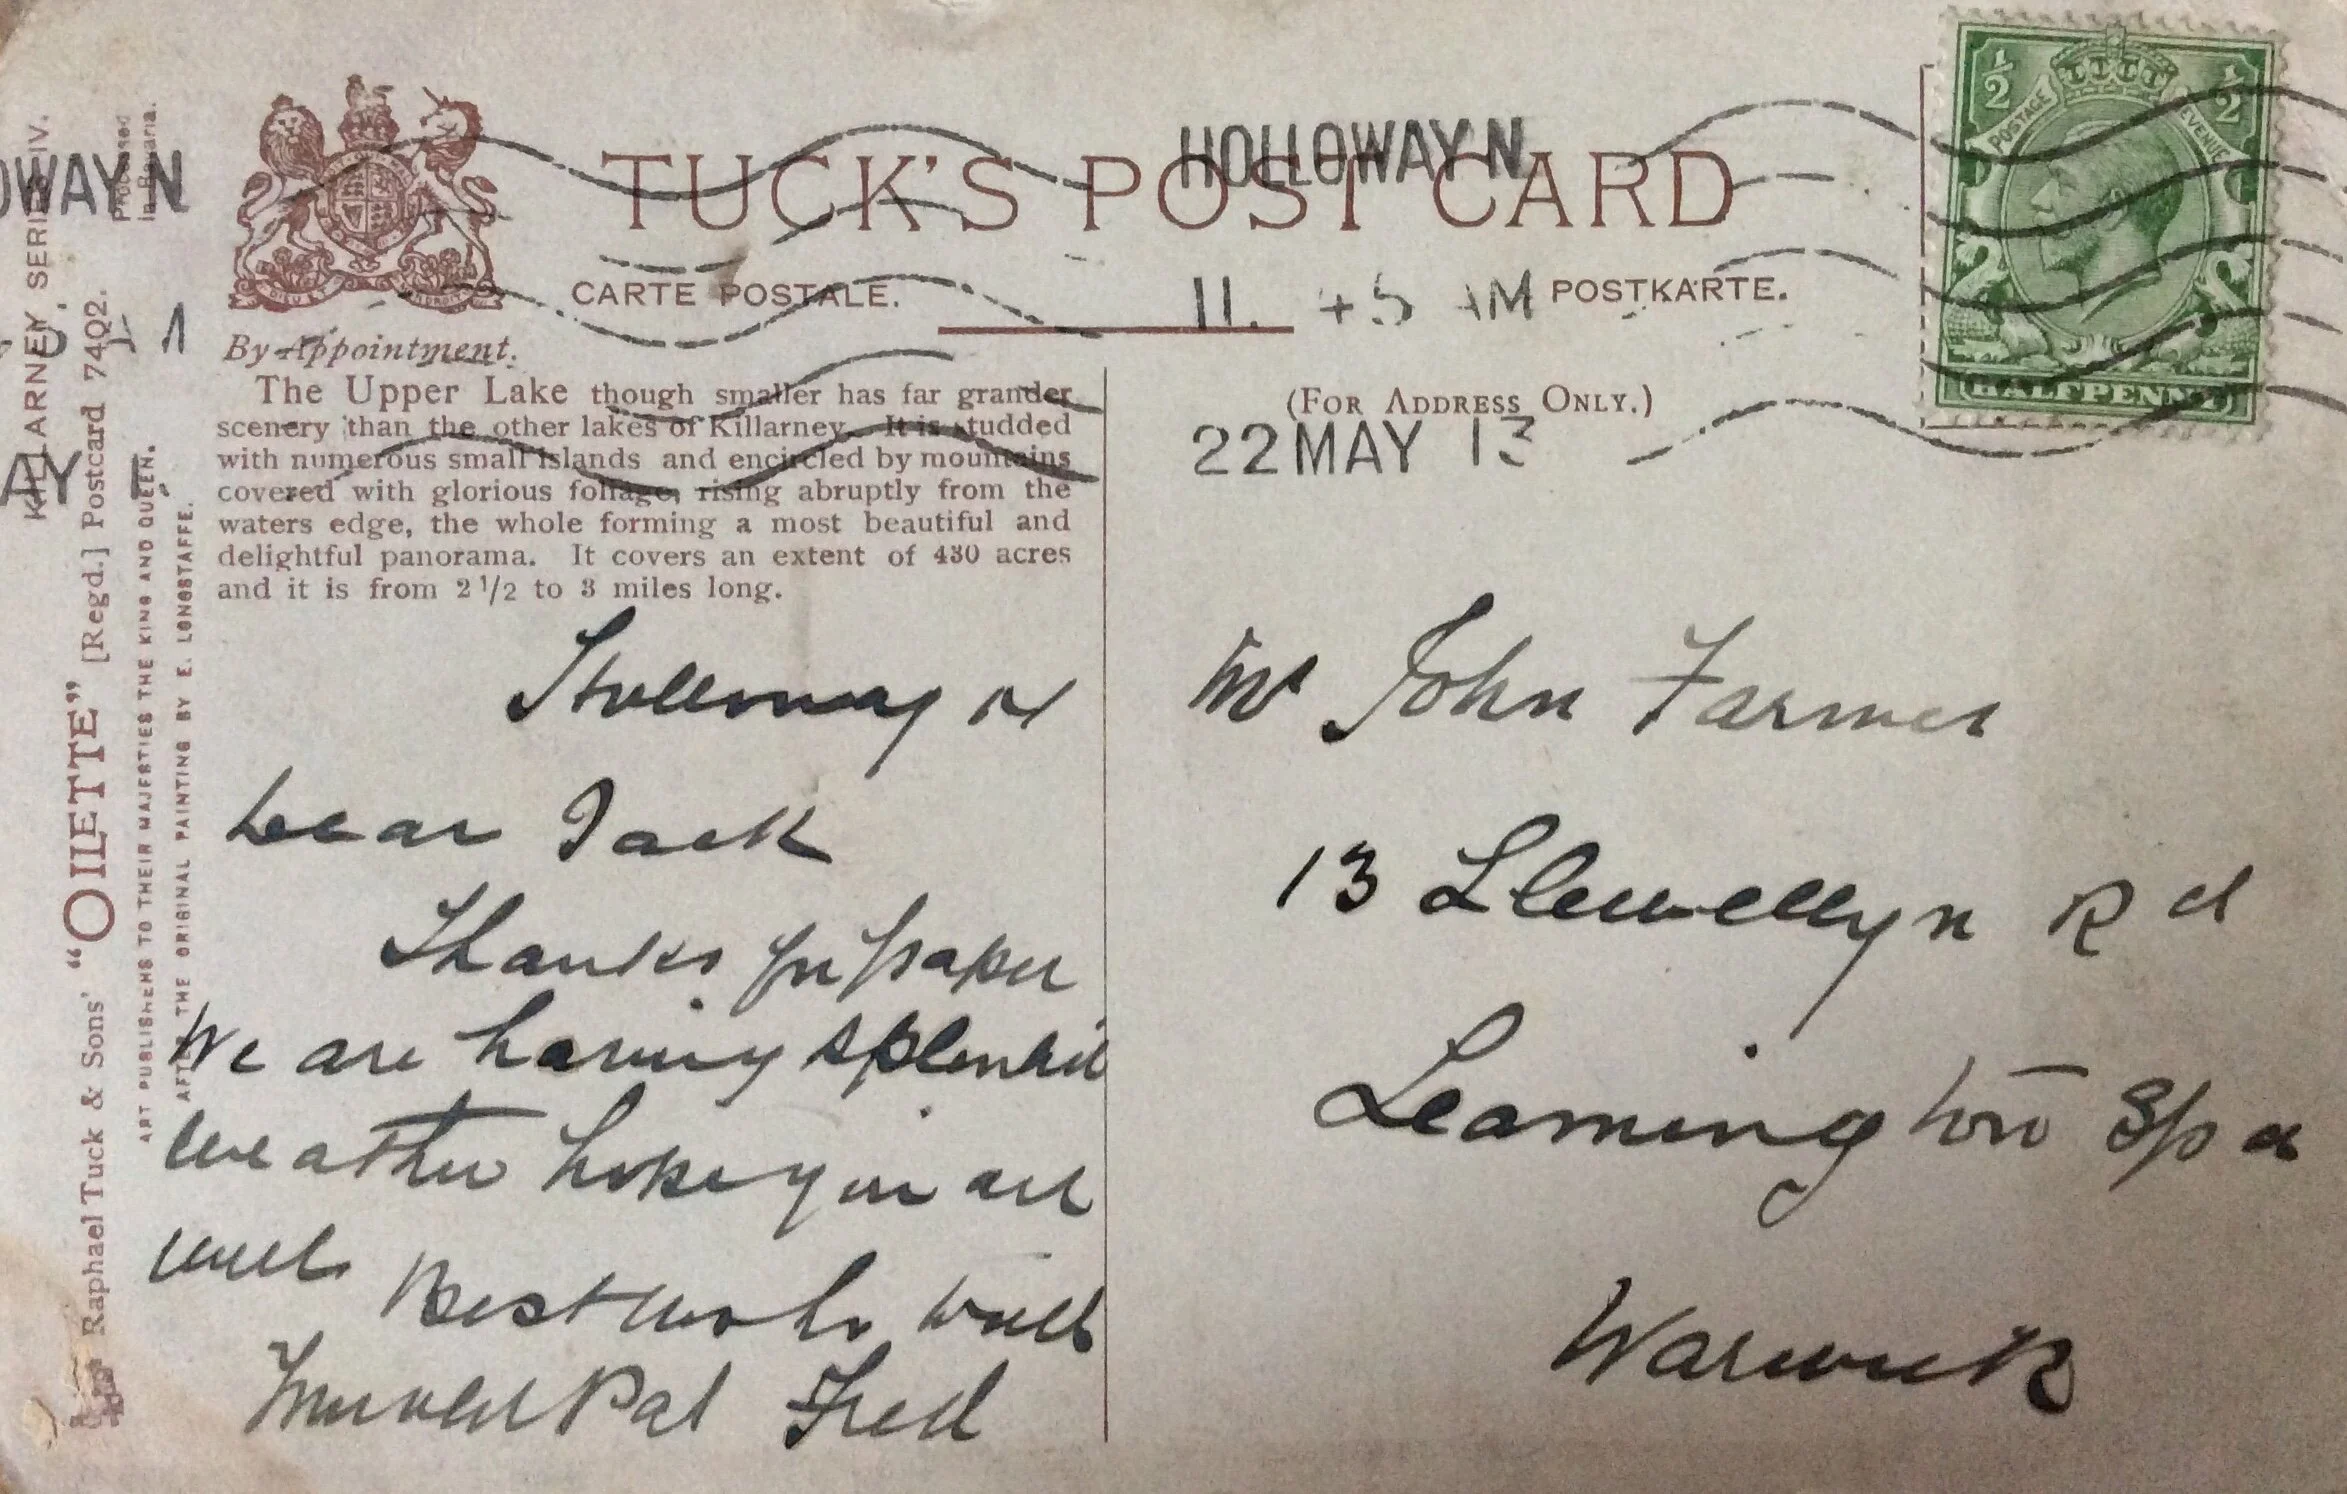 TUCK'S POST CARD
CARTE POSTALE. POSTKARTE.
HOLLOWAY N
11. 45 AM
22 MAY 13
½ ½
POSTAGE REVENUE
HALFPENNY
By Appointment.
(FOR ADDRESS ONLY.)
The Upper Lake though smaller has far grander
scenery than the other lakes of Killarney. It is studded
with numerous small islands and encircled by mountains
covered with glorious foliage, rising abruptly from the
waters edge, the whole forming a most beautiful and
delightful panorama. It covers an extent of 430 acres
and it is from 2 1/2 to 3 miles long.
Holloway N
Dear Jack
Thanks for paper
We are having splendid
weather hope you are
well Best
Pal Fred
Mr John Farmer
13 Llewellyn Rd
Leamington Spa
Warwick
KILLARNEY, SERIES IV.
Raphael Tuck & Sons' "OILETTE" [Regd.] Postcard 7402.
ART PUBLISHERS TO THEIR MAJESTIES THE KING AND QUEEN.
AFTER THE ORIGINAL PAINTING BY E. LONGSTAFFE.
Processed
in Bavaria.
OWAY N
AY 1